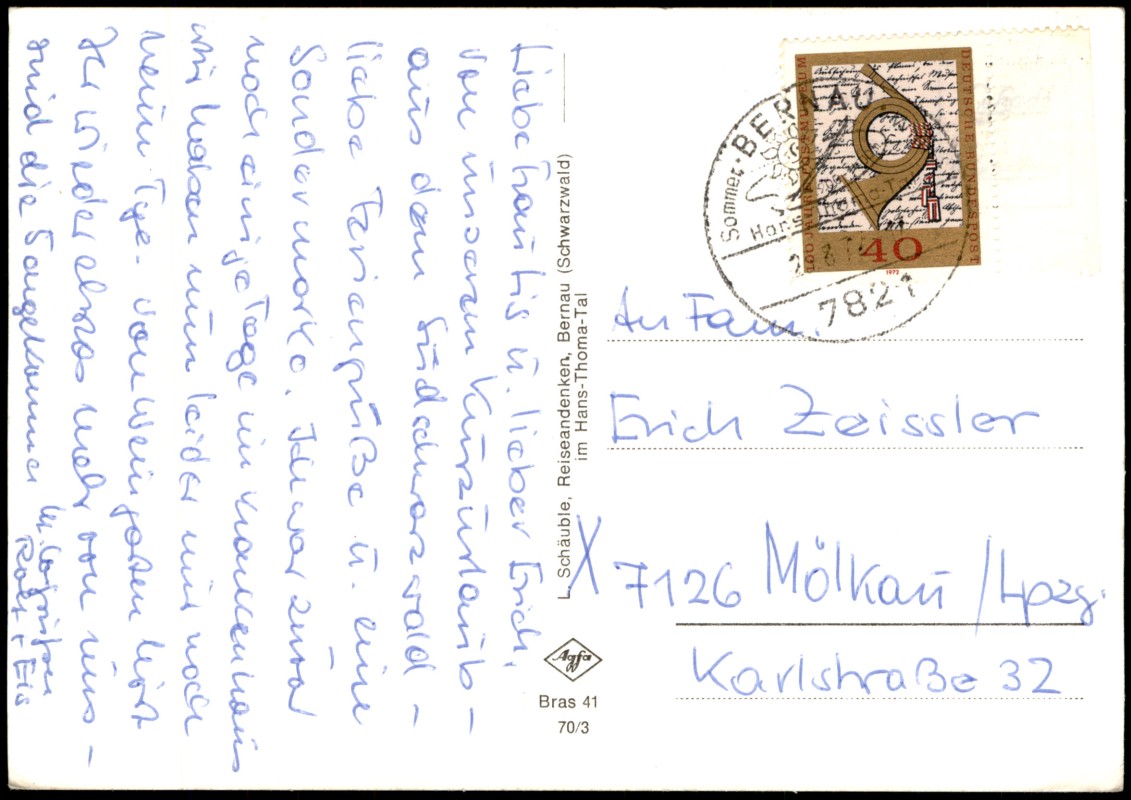 Liebe Trautis u. lieber Erich,
von unserem Kurzurlaub -
aus dem Südschwarzwald -
liebe Feriengrüße u. eine
Sondermarke. Ich war zwar
noch einige Tage im Krankenhaus
wir haben nun leider nur noch
neun Tge. Von Weingarten hört
Ihr wieder etwas mehr von uns -
sind die angekommen
Rolf + Els
L. Schäuble, Reiseandenken, Bernau (Schwarzwald)
im Hans-Thoma-Tal
Agfa
Bras 41
70/3
DEUTSCHE BUNDESPOST
40
1972
Sommer
BERNAU
7821
An Fam.
Erich Zeissler
X 7126 Mölkau / Lpzg.
Karlstraße 32